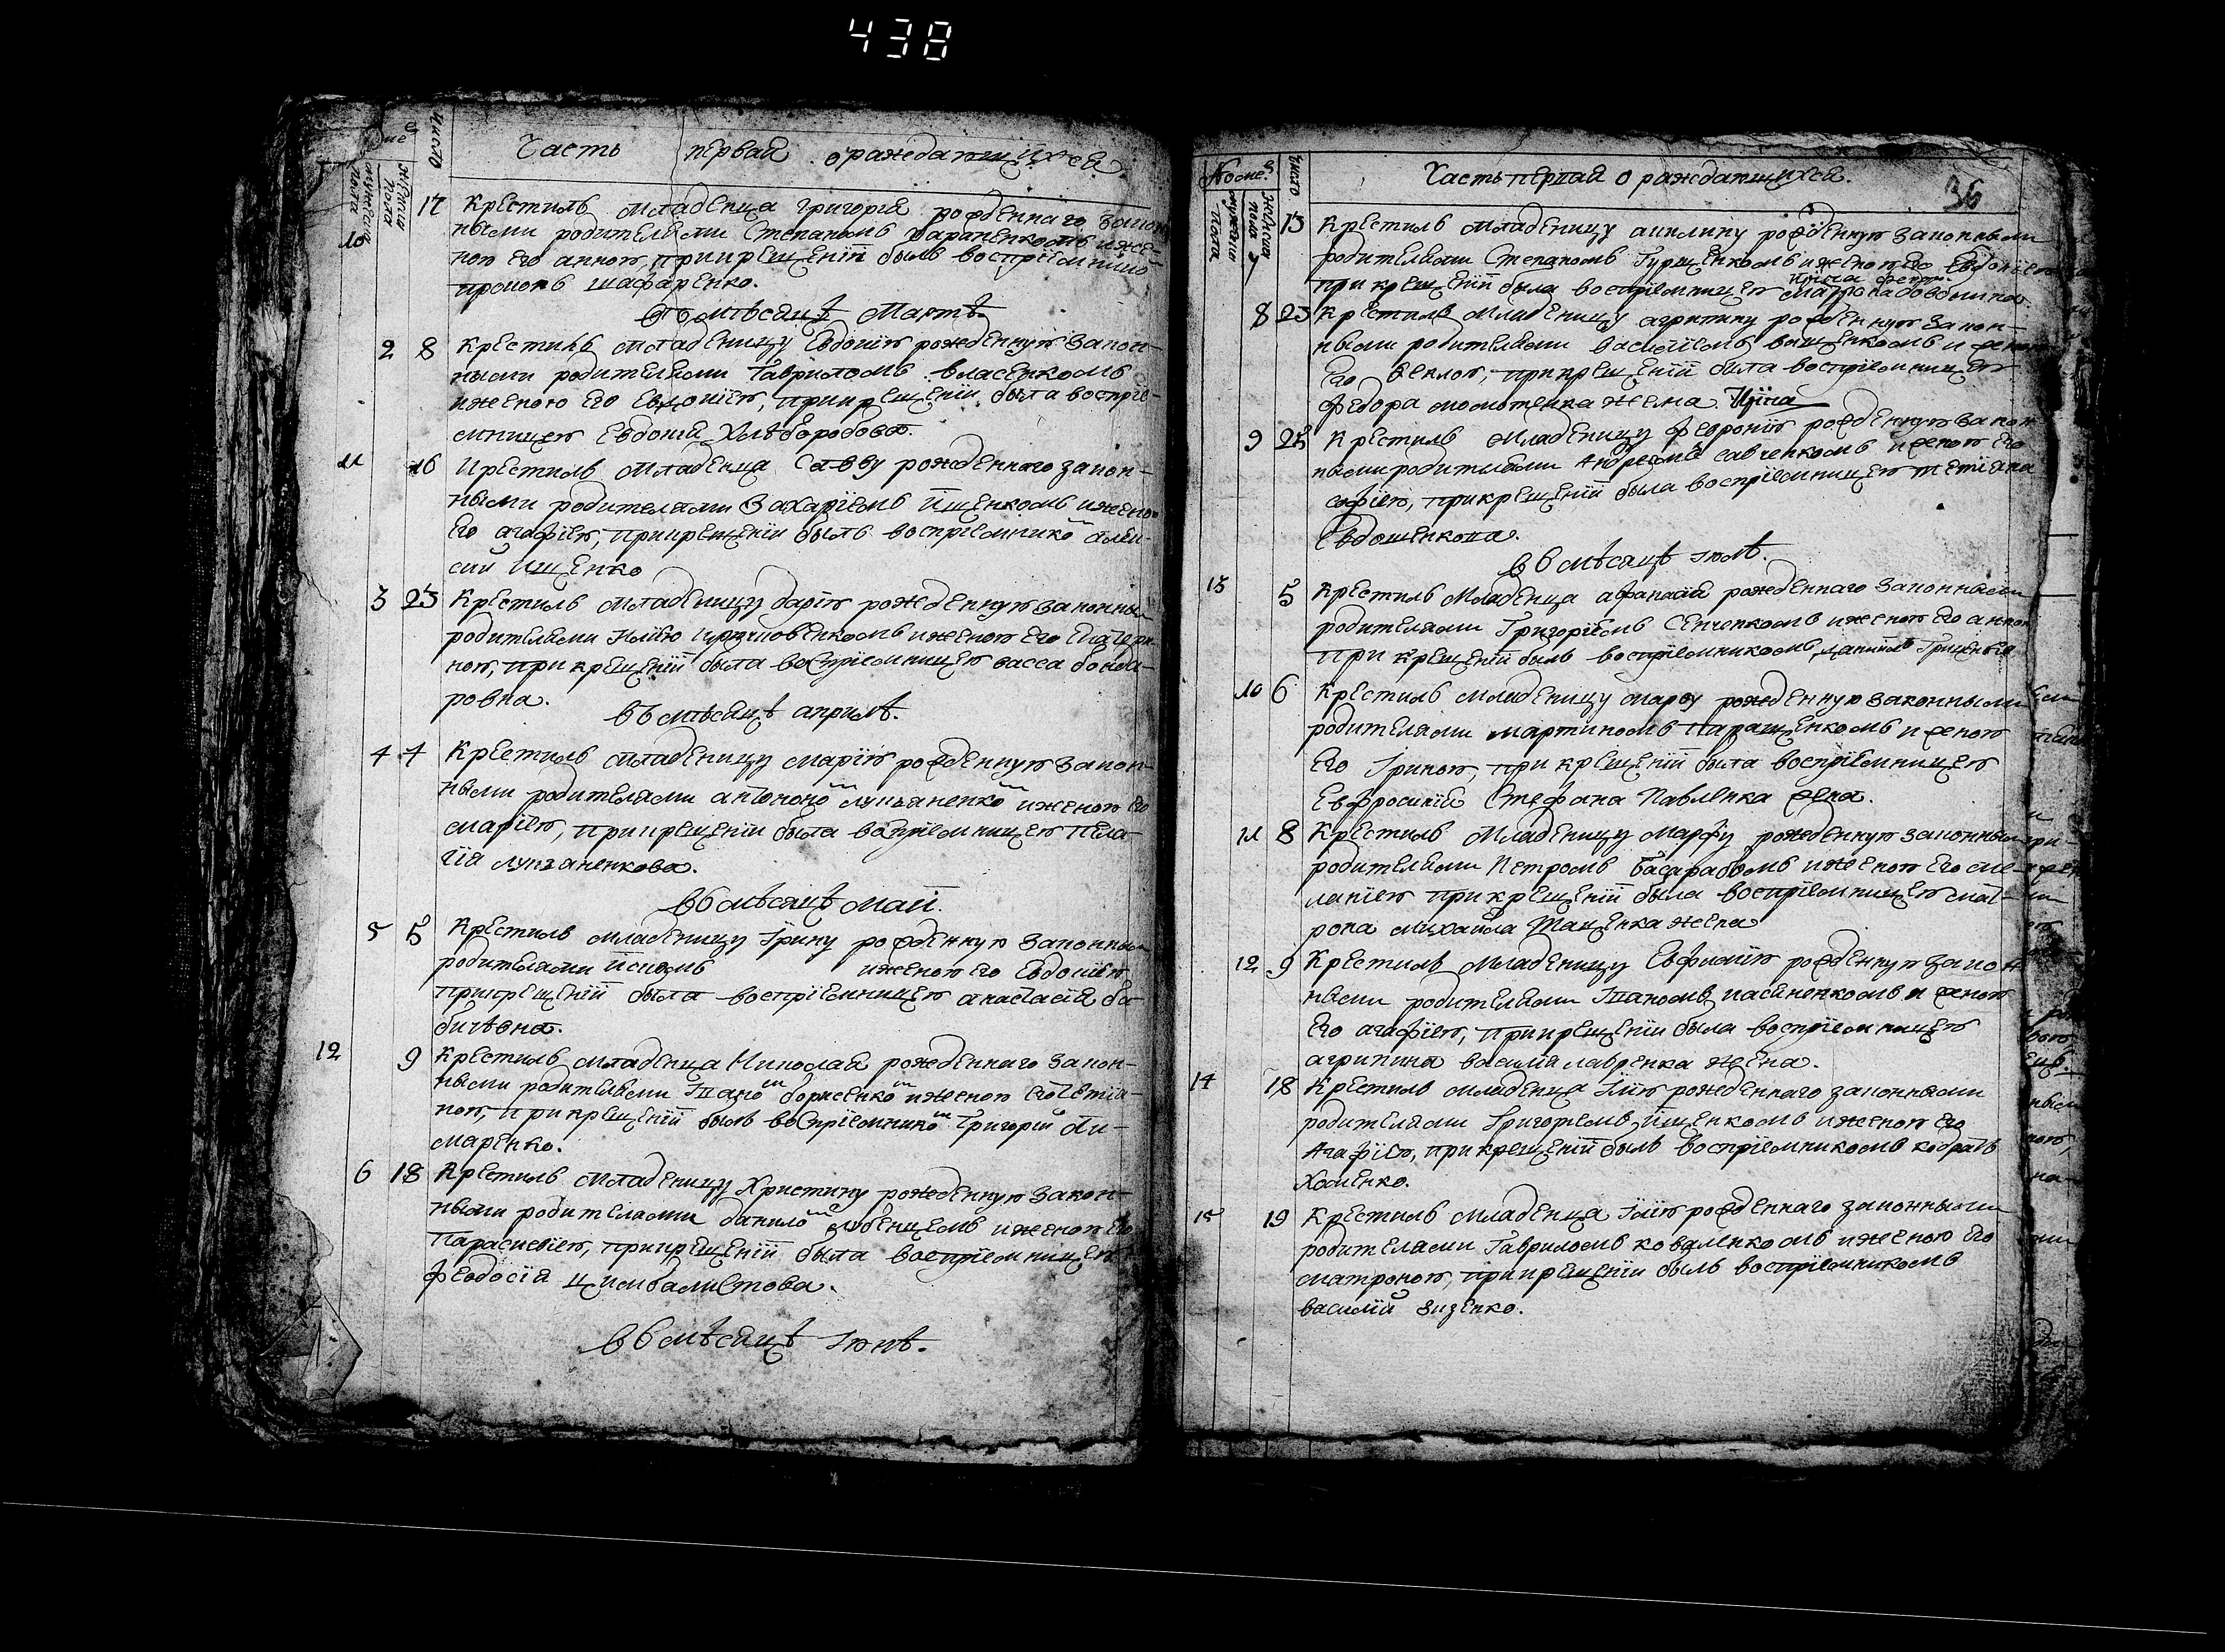 438
Часть первая о раждающихся.
число
женска пола
мужеска пола
10 17 Крестилъ младенца григорїя рожденнаго закон
ными родителями Степаномъ Тараненкомъ и же-
ною его анною, при крещенїи былъ воспрїемнико
прокопъ шафаренко.
въ мѣсяцѣ Мартѣ.
2 8 Крестилъ младеницу Евдокїю рожденную закон-
ными родителями Гавриломъ власенкомъ
и женою его Евдокїею, при крещенїи была воспрїе-
мницею Евдокия Хлѣбородова.
11 16 Крестилъ младенца Савву рожденнаго закон-
ными родителями Захарїемъ Ищенкомъ и жено
его агафїею, при крещенїи былъ воспрїемнико алек-
сий Ищенко
3 23 Крестилъ младеницу дарїю рожденную законны
родителями Илїею и женою его Екатери-
ною, при крещенїи была воспрїемницею васса бонда-
ровна.
въ мѣсяцѣ априлѣ.
4 4 Крестилъ младеницу марїю рожденную закон-
ными родителями антоно лукьяненко и женою его
марїею, при крещенїи была воспрїемницею Пела-
гїя лукьяненкова.
въ мѣсяцѣ маїи.
5 5 Крестилъ младеницу Ірину рожденную законны
родителями и женою его Евдокїею
при крещенїи была воспрїемницею анастасїя ба-
бичѣвна.
12 9 Крестилъ младенца Николая рожденнаго закон-
ными родителями Івано борисенко и женою его тетїа-
ною, при крещенїи былъ воспрїемнико Григорїй
маренко.
6 18 Крестилъ младеницу Христину рожденную закон-
ными родителями данило и женою его
Параскевїею, при крещенїи была воспрїемницею
феодосїя цимбалистова.
въ мѣсяцѣ Іюнѣ.
Часть первая о раждающихся.
36
число
женска пола
мужеска пола
7 13 Крестилъ младеницу акилину рожденную законными
родителями Степаномъ Гурщенкомъ и женою его Евдокїею
при крещенїи была воспрїемницею матрона
8 23 Крестилъ младеницу агрипину рожденную закон-
ными родителями василїемъ ващенкомъ и женою
его феклою, при крещенїи была воспрїемницею
федора жена
9 25 Крестилъ младеницу февронїю рожденную закон
ными родителями Андреемъ савченкомъ и женою его
софїею, при крещенїи была воспрїемницею тетїяна
Евдощенкова.
въ мѣсяцѣ Іюлѣ.
13 5 Крестилъ младенца афанасїя рожденнаго законными
родителями Григорїемъ Сенченкомъ и женою его анною
при крещенїи былъ воспрїемникомъ данїилъ
10 6 Крестилъ младеницу марѳу рожденную законными
родителями мартиномъ Паращенкомъ и женою
его Іриною, при крещенїи была воспрїемницею
Евфросинїя Стефана Павленка жена.
11 8 Крестилъ младеницу марфу рожденную законным
родителями Петромъ басарабомъ и женою его ме-
ланїею при крещенїи была воспрїемницею мат-
рона михаила Тащенка жена
12 9 Крестилъ младеницу Евфимїю рожденную закон
ными родителями Іваномъ касяненкомъ и женою
его агафїею, при крещенїи была воспрїемницею
агрипина василия лавренка жена.
14 18 Крестилъ младенца Ілїю рожденнаго законными
родителями Григорїемъ Ищенкомъ и женою его
Агафїею, при крещенїи былъ воспрїемникомъ кодратъ
Хоменко.
15 19 Крестилъ младенца Ілїю рожденнаго законными
родителями Гавриломъ коваленкомъ и женою его
матроною, при крещенїи былъ воспрїемникомъ
василїй зизенко.